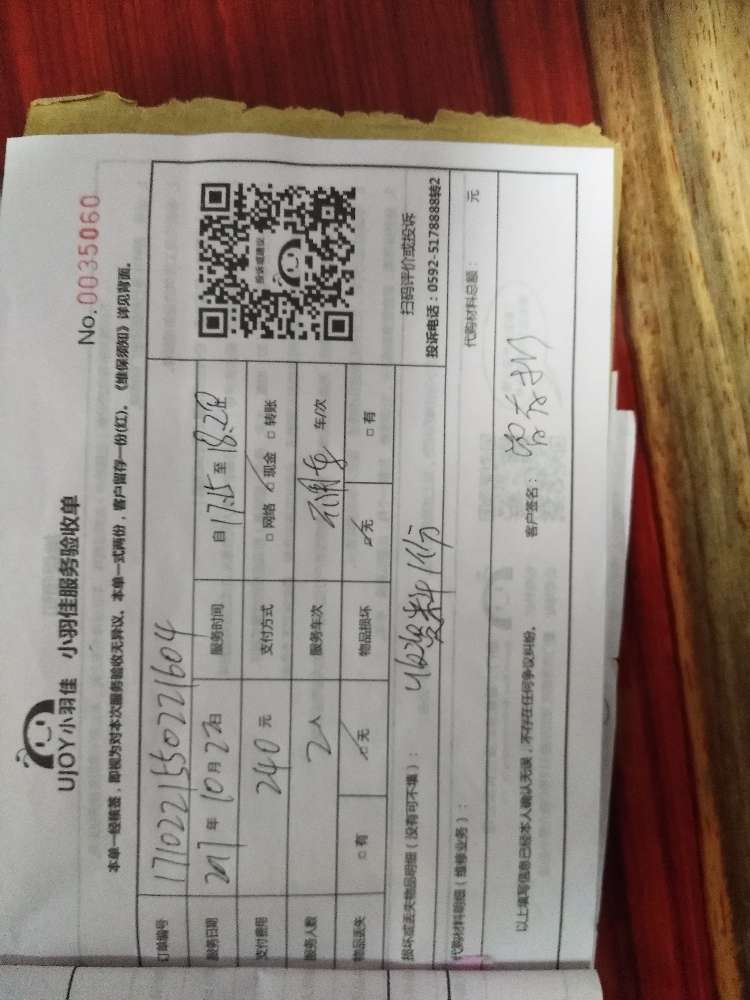 UJOY小羽佳 小羽佳服务验收单
No. 0035060
本单一经核签，即视为对本次服务验收无异议。本单一式两份，客户留存一份(红)。《维保须知》详见背面。
订单编号 1710221550221604
服务日期 2017 年 10 月 22 日 服务时间 自 17:15 至
支付费用 240 元 支付方式 □ 网络 ☑ 现金 □ 转账
服务人数 2 人 服务车次 车/次
物品丢失 □ 有 ☑ 无 物品损坏 ☑ 无 □ 有
投诉或建议
扫码评价或投诉
投诉电话：0592-5178888转2
损坏或丢失物品明细（没有可不填）： 收资料1份
代购材料明细（维修业务）： 代购材料总额： 元
以上填写信息已经本人确认无误，不存在任何争议纠纷。 客户签名：